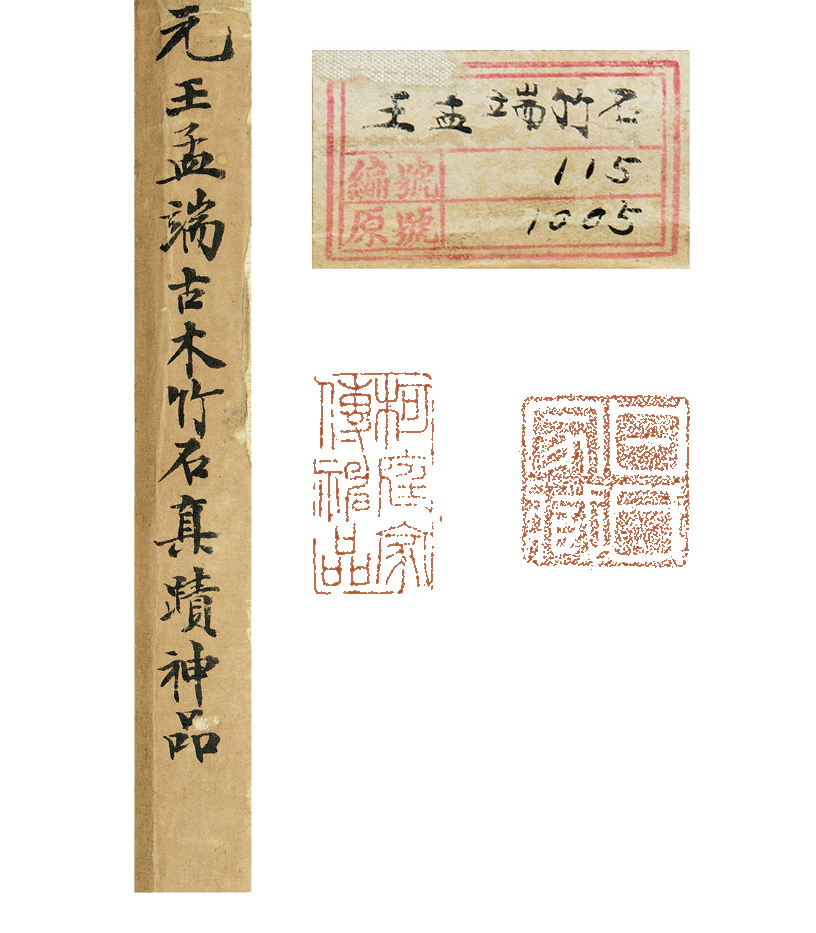 元王孟端古木竹石真蹟神品
王孟端竹石
編號 115
原號 1005
柯庭家
傳品